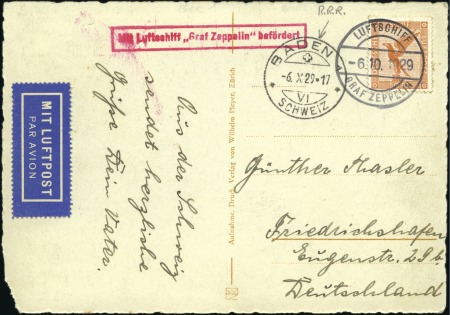 R.R.R.
Mit Luftschiff „Graf Zeppelin“ befördert
BADEN
-6.X.29-17
VI
SCHWEIZ
LUFTSCHIFF
-6.10.1929
GRAF ZEPPELIN
MIT LUFTPOST
PAR AVION
Aus der Schweiz
sendet herzliche
Grüße Dein Vater.
Aufnahme, Druck u. Verlag von Wilhelm Pleyer, Zürich
Günther Thasler
Friedrichshafen
Eugenstr. 29b
Deutschland